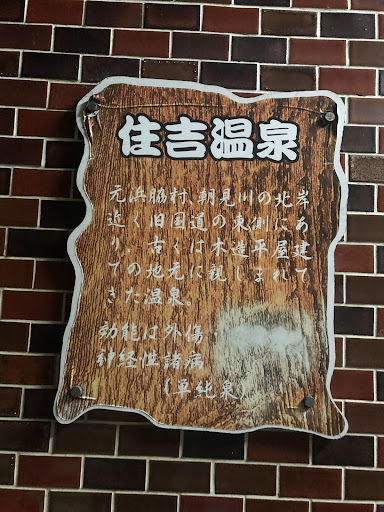 住吉温泉
元浜脇村、朝見川の北岸
近く旧国道の東側にあ
り、古くは木造平屋建
ての地元に親しまれて
きた温泉。
効能は外傷・
神経性諸病
(単純泉)